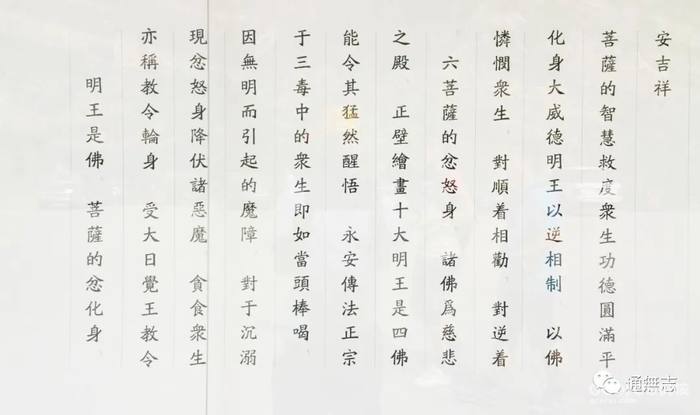 明王是佛 菩薩的忿化身
亦稱教令輪身 受大日覺王教令
現忿怒身降伏諸惡魔 貪食衆生
因無明而引起的魔障 對于沉溺
于三毒中的衆生即如當頭棒喝
能令其猛然醒悟 永安傳法正宗
之殿 正壁繪畫十大明王是四佛
六菩薩的忿怒身 諸佛爲慈悲
憐憫衆生 對順着相勸 對逆着
化身大威德明王以逆相制 以佛
菩薩的智慧救度衆生功德圓滿平
安吉祥
通無志